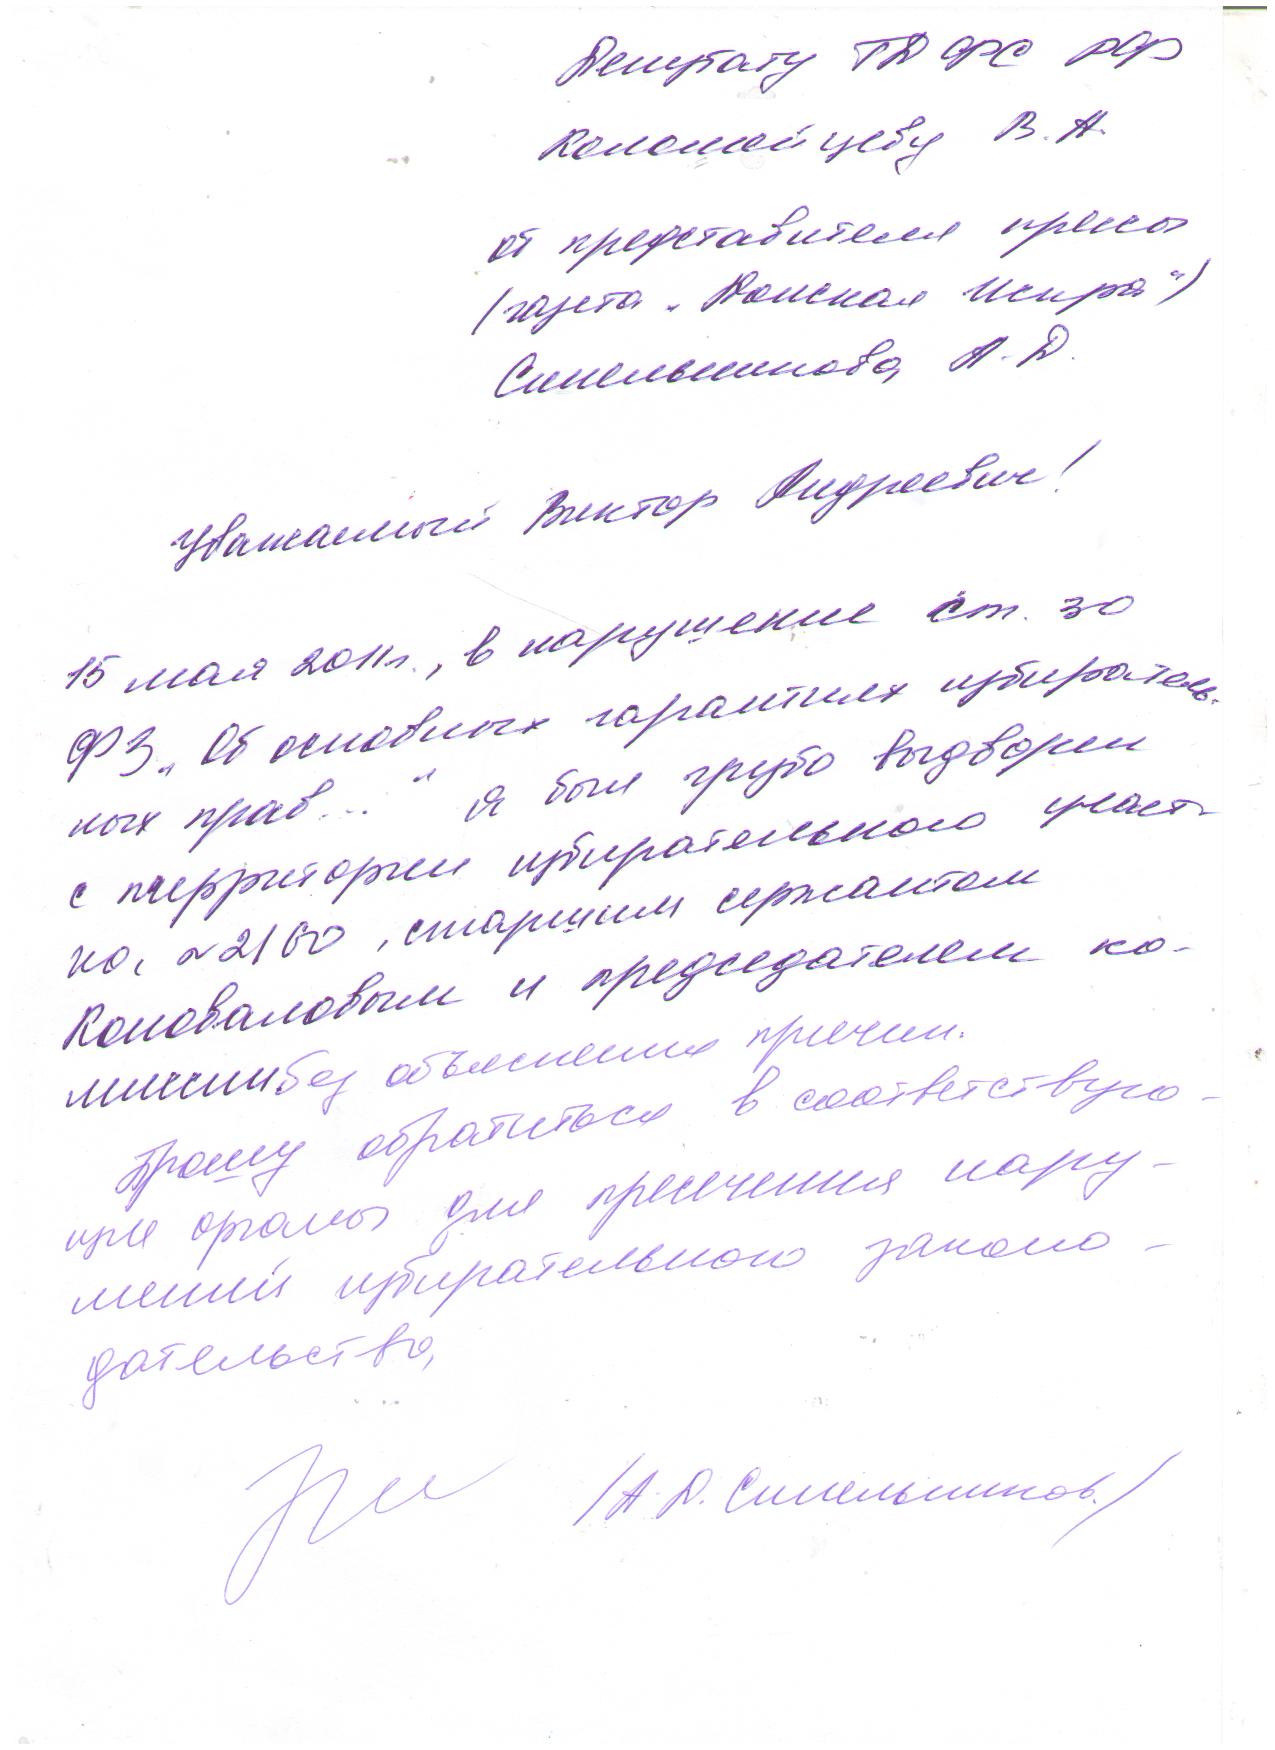 Депутату ГД ФС РФ
Коломейцеву В. А.
от представителя прессы
(газета „Донская искра")
Синельникова А. Д.
Уважаемый Виктор Андреевич!
15 мая 2011г., в нарушение ст. 30
ФЗ „Об основных гарантиях избиратель-
ных прав..." я был грубо выдворен
с территории избирательного участ-
ка, № 2160, старшим сержантом
Коноваловым и председателем ко-
миссии без объяснения причин.
Прошу обратиться в соответствую-
щие органы для пресечения нару-
шений избирательного законо-
дательства,
/А. Д. Синельников./